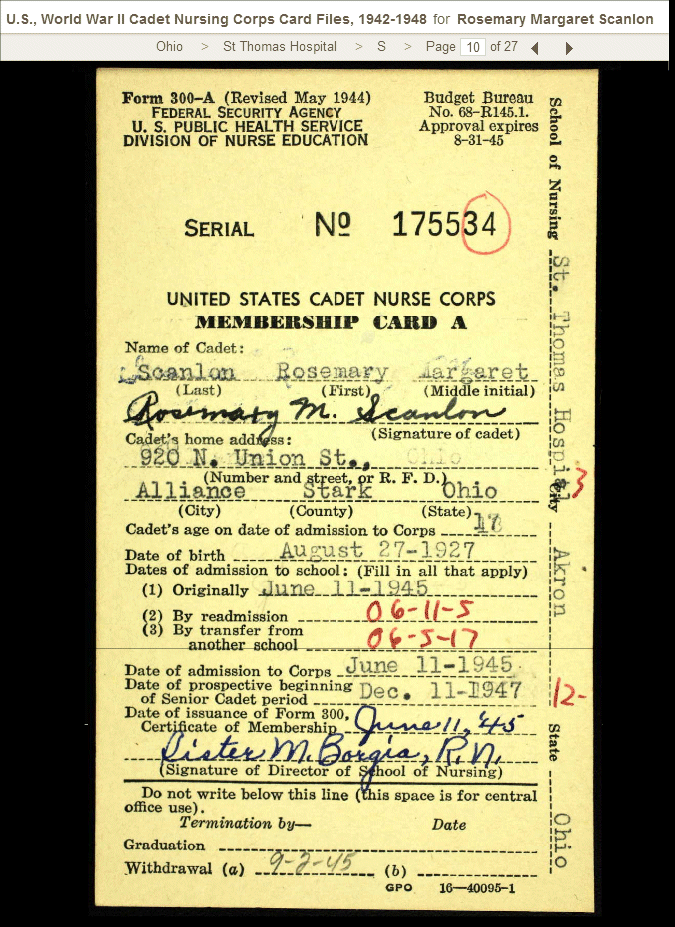 U.S., World War II Cadet Nursing Corps Card Files, 1942-1948 for Rosemary Margaret Scanlon
Ohio > St Thomas Hospital > S > Page 10 of 27
Form 300-A (Revised May 1944)
FEDERAL SECURITY AGENCY
U. S. PUBLIC HEALTH SERVICE
DIVISION OF NURSE EDUCATION
Budget Bureau
No. 68-R145.1.
Approval expires
8-31-45
SERIAL No 175534
UNITED STATES CADET NURSE CORPS
MEMBERSHIP CARD A
Name of Cadet:
Scanlon Rosemary Margaret
(Last) (First) (Middle initial)
Rosemary M. Scanlon
(Signature of cadet)
Cadet's home address:
920 N. Union St., Ohio
(Number and street, or R. F. D.)
Alliance Stark Ohio
(City) (County) (State)
Cadet's age on date of admission to Corps 17
Date of birth August 27-1927
Dates of admission to school: (Fill in all that apply)
(1) Originally June 11-1945
(2) By readmission 06-11-5
(3) By transfer from
another school 06-5-17
Date of admission to Corps June 11-1945
Date of prospective beginning
of Senior Cadet period Dec. 11-1947
Date of issuance of Form 300,
Certificate of Membership June 11, '45
Sister M. Borgia, R.N.
(Signature of Director of School of Nursing)
Do not write below this line (this space is for central
office use).
Termination by— Date
Graduation
Withdrawal (a) 9-2-45 (b)
GPO 16—40095-1
School of Nursing St. Thomas Hospital City Akron State Ohio
3
12-